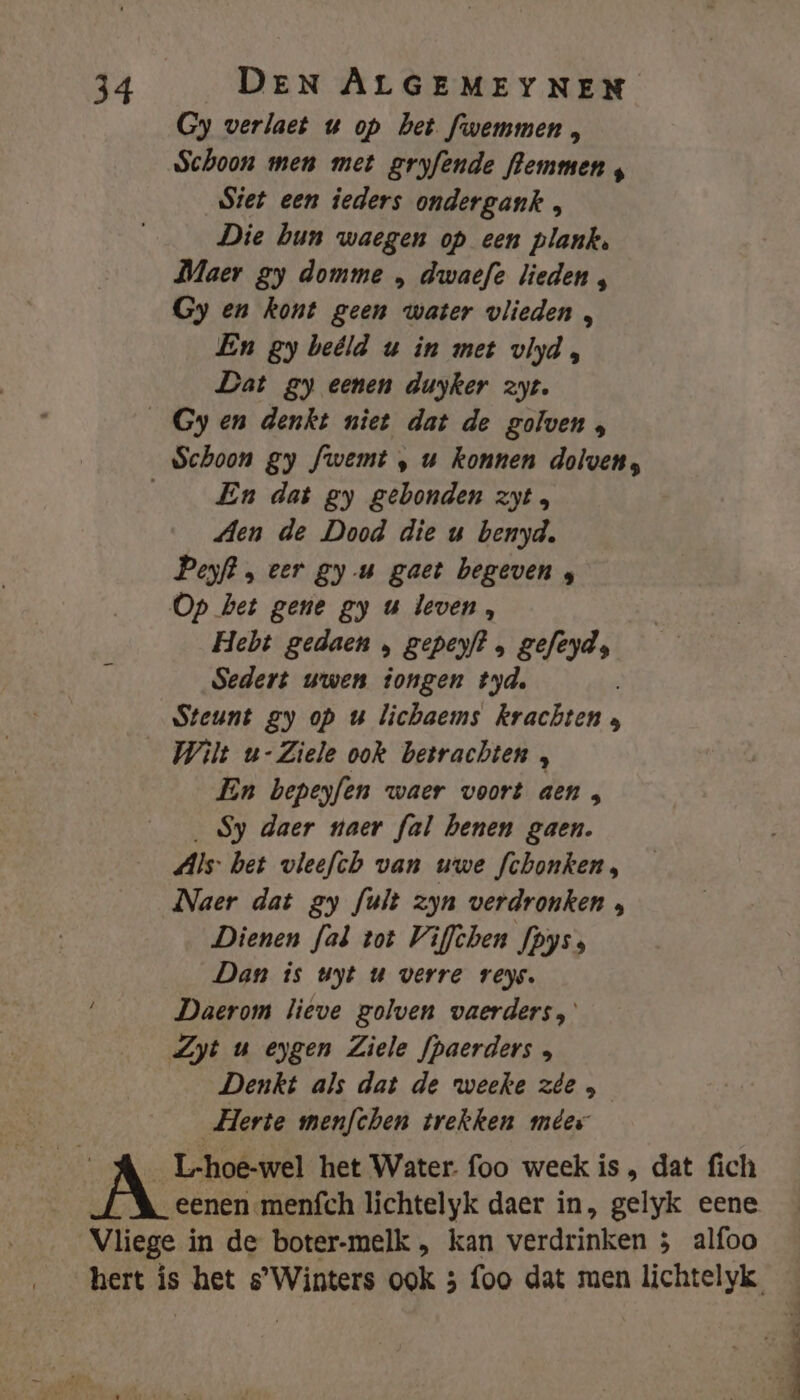 34 DEN ALGEMEYNEN
Gy verlaet u op het ſwemmen,
Schoon men met gryſende ſtemmen,
Siet een ieders ondergank,
Die hun waegen op een plank.
Maer gy domme, dwaeſe lieden,
Gy en kont geen water vlieden,
En gy beéld u in met vlyd,
Dat gy eenen duyker zyt.
Gy en denkt niet dat de golven,
Schoon gy ſwemt, u konnen dolven,
En dat gy gebonden zyt,
Aen de Dood die u benyd.
Peyſt, eer gy u gaet begeven,
Op het gene gy u leven,
Hebt gedaen, gepeyſt, geſeyd,
Sedert uwen iongen tyd.
Steunt gy op u lichaems krachten,
Wilt u-Ziele ook betrachten,
En bepeyſen waer voort aen,
Sy daer naer ſal henen gaen.
Als het vleeſch van uwe ſchonken,
Naer dat gy ſult zyn verdronken,
Dienen ſal tot Viſſchen ſpys,
Dan is uyt u verre reys.
Daerom lieve golven vaerders,
Zyt u eygen Ziele ſpaerders,
Denkt als dat de weeke zée,
Herte menſchen trekken mée
AL-hoe-wel het Water ſoo week is, dat ſich
eenen menſch lichtelyk daer in, gelyk eene
Vliege in de boter-melk, kan verdrinken; alſoo
hert is het s'Winters ook; ſoo dat men lichtelyk